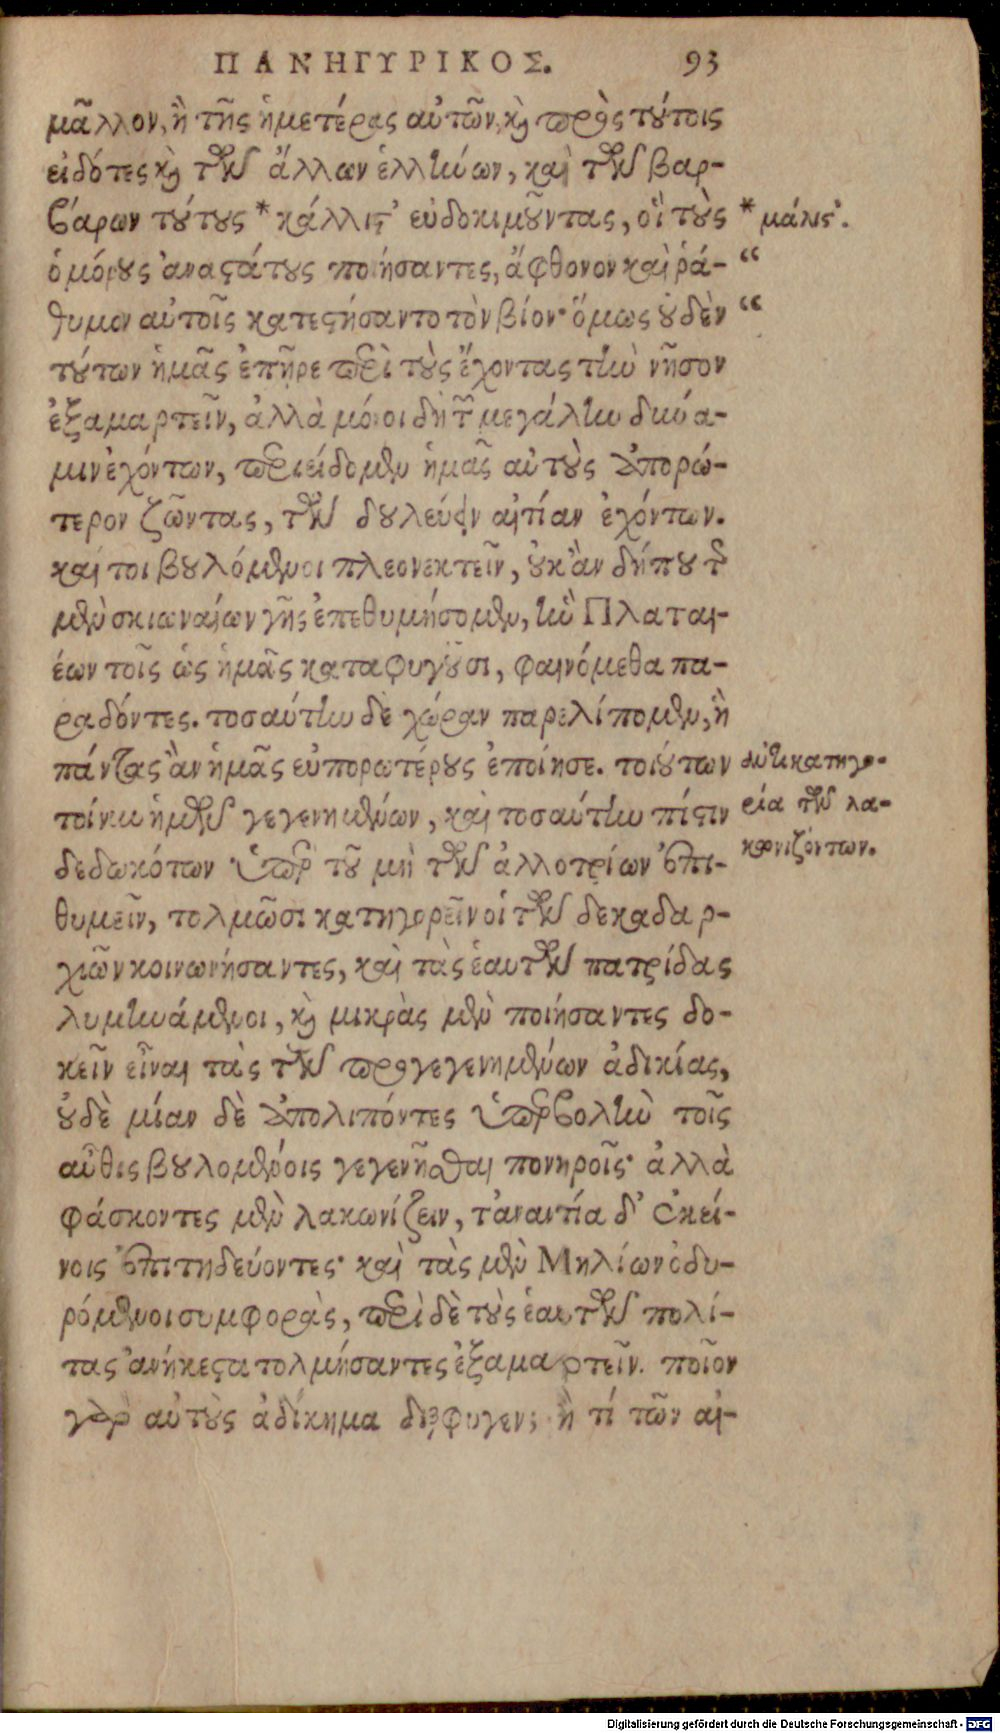 ΠΑΝΗΓΥΡΙΚΟΣ. 93
μᾶλλον, ἢ τῆς ἡμετέρας αὐτῶν, καὶ πρὸς τούτοις
εἰδότες καὶ τῶν ἄλλων ἑλλήνων, καὶ τῶν βαρ-
βάρων τούτους * κάλλιστ' εὐδοκιμοῦντας, οἳ τοὺς * μάλιστ'.
ὁμόρους ἀναστάτους ποιήσαντες, ἄφθονον καὶ ῥά- “
θυμον αὐτοῖς κατεστήσαντο τὸν βίον· ὅμως οὐδὲν “
τούτων ἡμᾶς ἐπῆρε περὶ τοὺς ἔχοντας τὴν νῆσον
ἐξαμαρτεῖν, ἀλλὰ μόνοι δὴ τῶν μεγάλην δύνα-
μιν ἐχόντων, περιείδομεν ἡμᾶς αὐτοὺς ἀπορώ-
τερον ζῶντας, τῶν δουλεύειν αἰτίαν ἐχόντων.
καί τοι βουλόμενοι πλεονεκτεῖν, οὐκ ἂν δήπου τῆς
μὲν σκιωναίων γῆς ἐπεθυμήσομεν, ἣν Πλαται-
έων τοῖς ὡς ἡμᾶς καταφυγοῦσι, φαινόμεθα πα-
ραδόντες. τοσαύτην δὲ χώραν παρελίπομεν, ἣ
πάντας ἂν ἡμᾶς εὐπορωτέρους ἐποίησε. τοιούτων ἀντικατηγο-
τοίνυν ἡμῶν γεγενημένων, καὶ τοσαύτην πίστιν ρία τῶν λα-
δεδωκότων ὑπὲρ τοῦ μὴ τῶν ἀλλοτρίων ἐπι- κωνιζόντων.
θυμεῖν, τολμῶσι κατηγορεῖν οἱ τῶν δεκαδαρ-
χιῶν κοινωνήσαντες, καὶ τὰς ἑαυτῶν πατρίδας
λυμηνάμενοι, καὶ μικρὰς μὲν ποιήσαντες δο-
κεῖν εἶναι τὰς τῶν προγεγενημένων ἀδικίας,
οὐδὲ μίαν δὲ ἀπολιπόντες ὑπερβολὴν τοῖς
αὖθις βουλομένοις γεγενῆσθαι πονηροῖς· ἀλλὰ
φάσκοντες μὲν λακωνίζειν, τἀναντία δ' ἐκεί-
νοις ἐπιτηδεύοντες· καὶ τὰς μὲν Μηλίων ὀδυ-
ρόμενοι συμφορὰς, περὶ δὲ τοὺς ἑαυτῶν πολί-
τας ἀνήκεστα τολμήσαντες ἐξαμαρτεῖν. ποῖον
γὰρ αὐτοὺς ἀδίκημα διέφυγεν; ἢ τί τῶν αἰ-
Digitalisierung gefördert durch die Deutsche Forschungsgemeinschaft - DFG